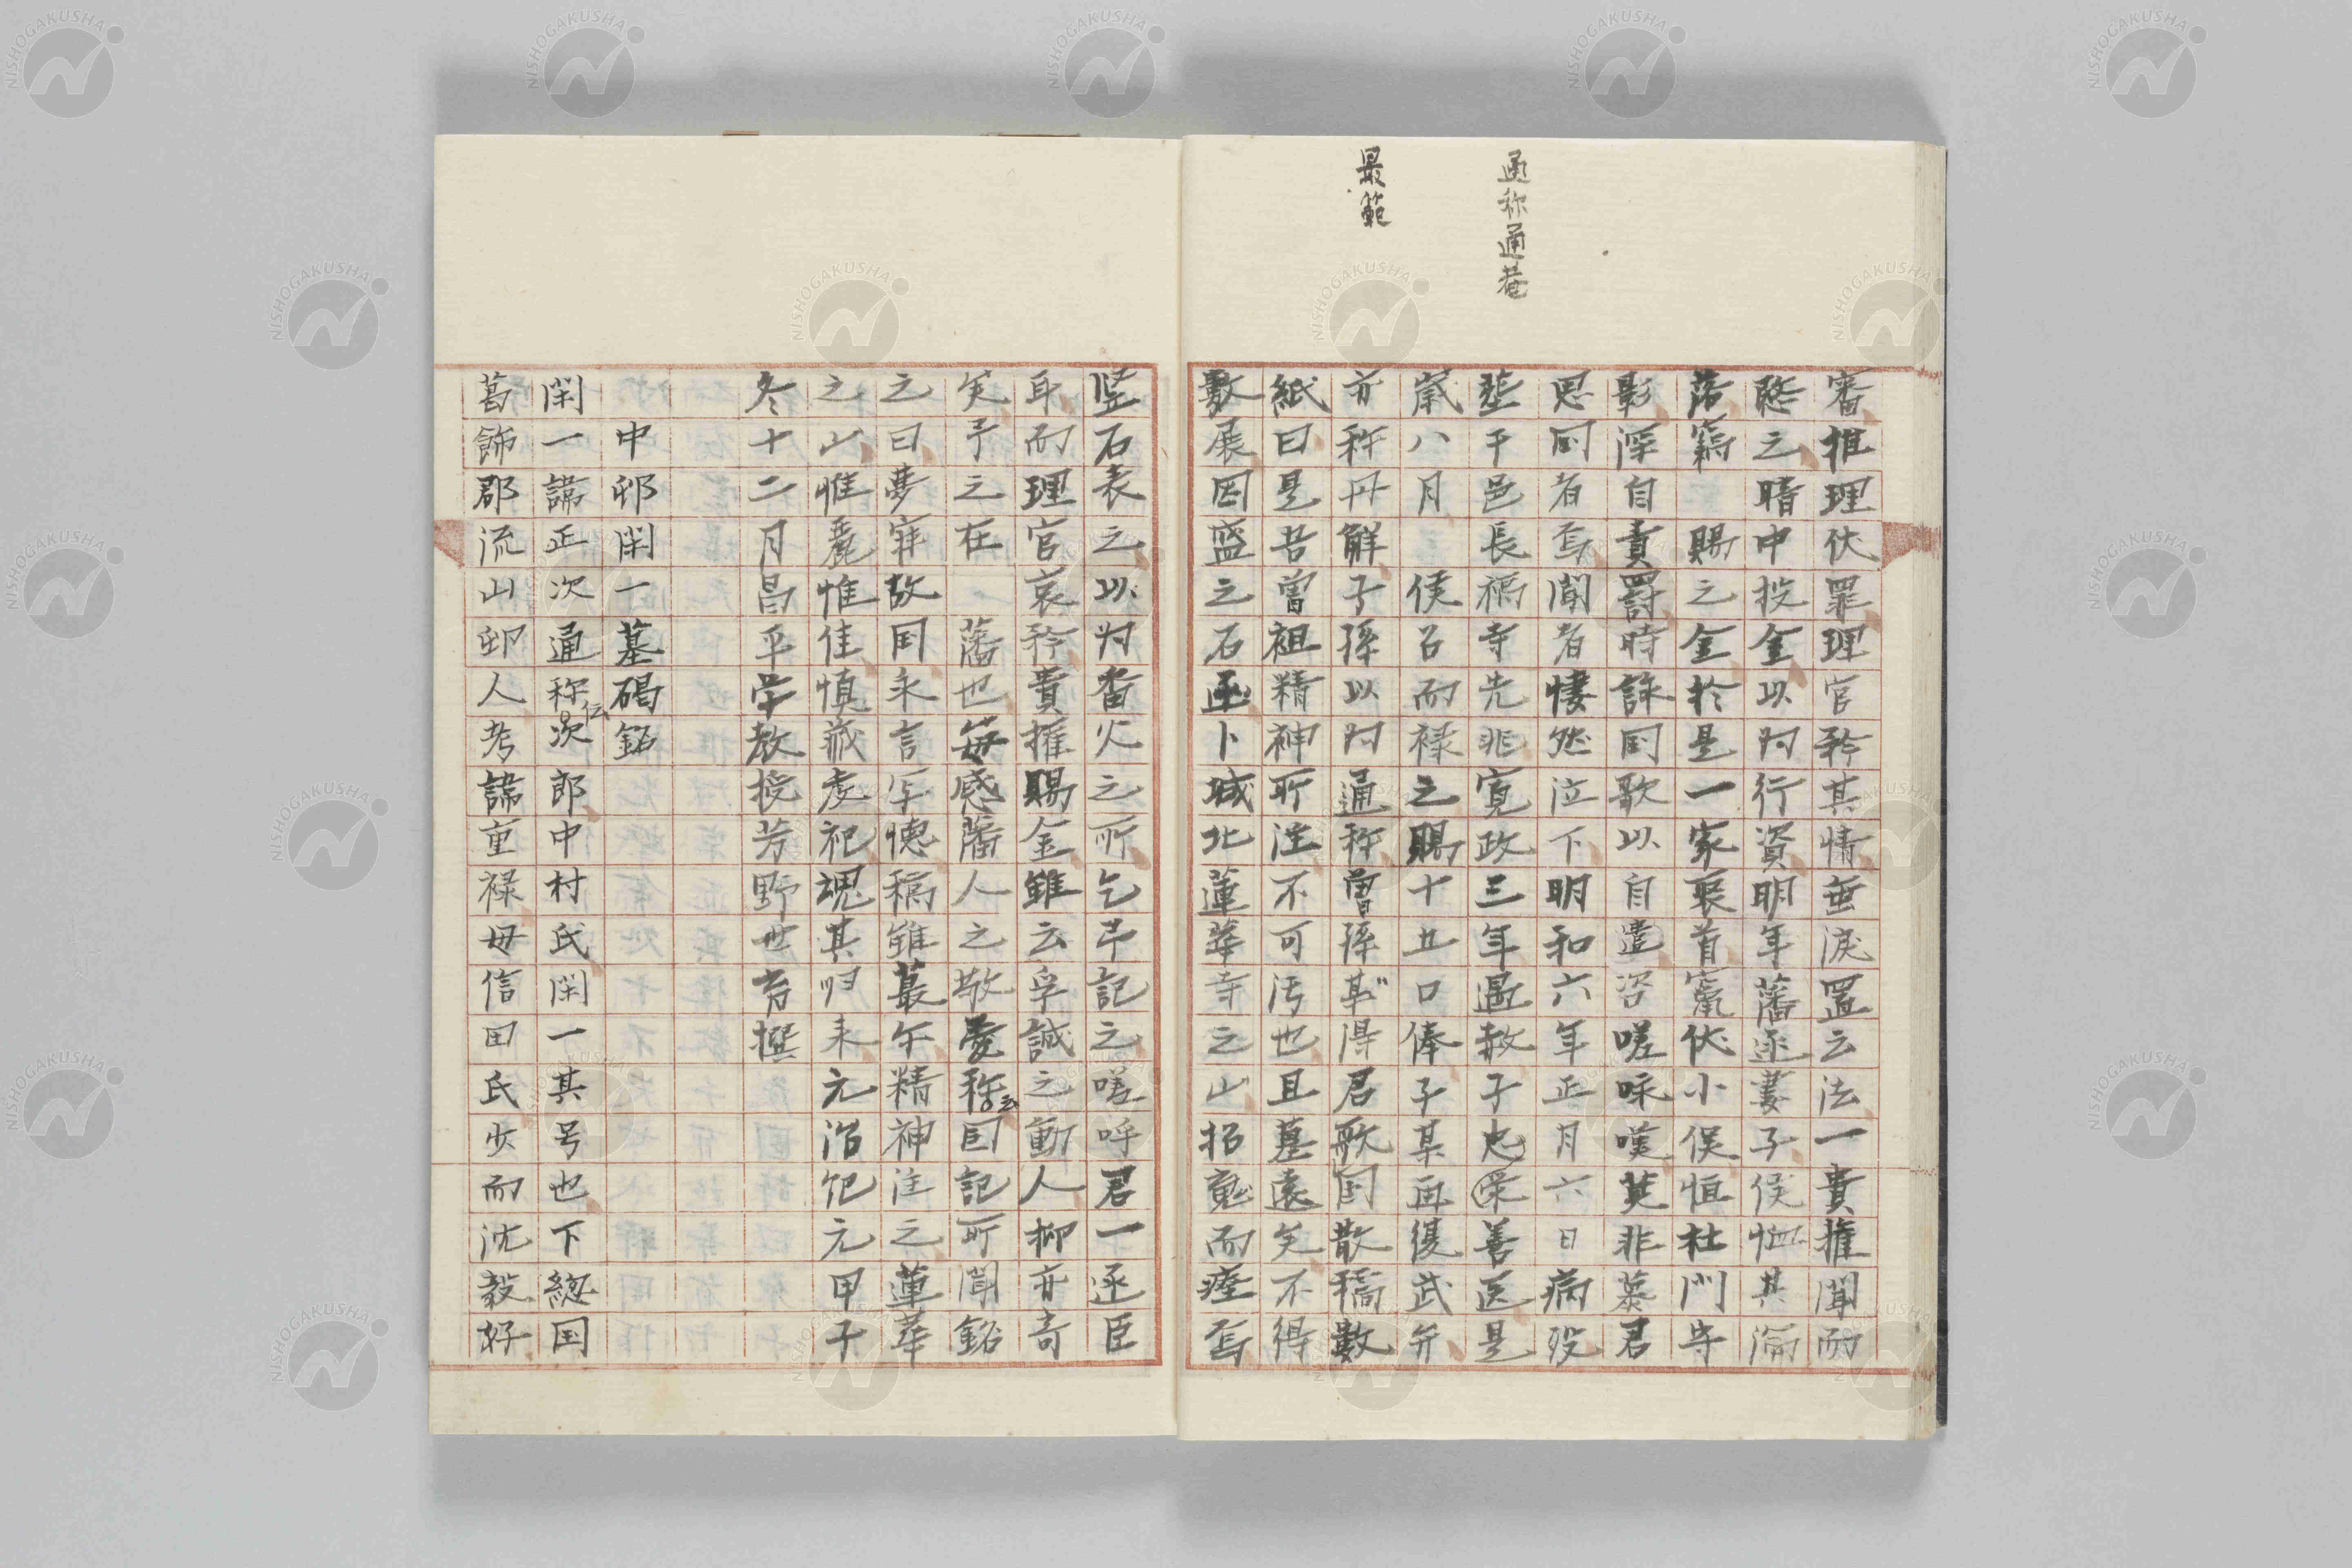 通称通菴
最範
審推理伏罪理官矜其情垂涙置云法一貴権聞而
愍之晴中投金以附行資明年藩逐妻子侯恤其淪
落窮賜之金於是一家裒首竄伏小俣恒杜門守
影深自責罰時詠国歌以自遣咨嗟咏嘆莫非慕君
思国者焉聞者悽然泣下明和六年正月六日病歿
塟于邑長福寺先兆寛政三年遇赦子忠栄善医是
歳八月侯召而禄之賜十五口俸子某再復武弁
亦称丹解子孫以附通称曽孫某得君歌国散稿数
紙曰是吾曽祖精神所注不可汚也且墓遠矣不得
数展因盛之石函卜城北蓮華寺之山招魂而瘞焉
竖石表之以為香火之所乞予記之嗟呼君一逐臣
耳而理官哀矜貴権賜金雖云孚誠之動人抑亦奇
矣予之在藩也毎感藩人之敬愛称云因記所聞銘
之曰夢寐故国永言寧徳稿雖蕞尓精神注之蓮華
之山惟麗惟佳慎蔵虔祀魂其帰来元治紀元甲子
冬十二月昌平学教授芳野世育撰
中邨閑一墓碣銘
閑一諱正次通称伝次郎中村氏閑一其号也下総国
葛飾郡流山邨人考諱重禄母信田氏少而沈毅好